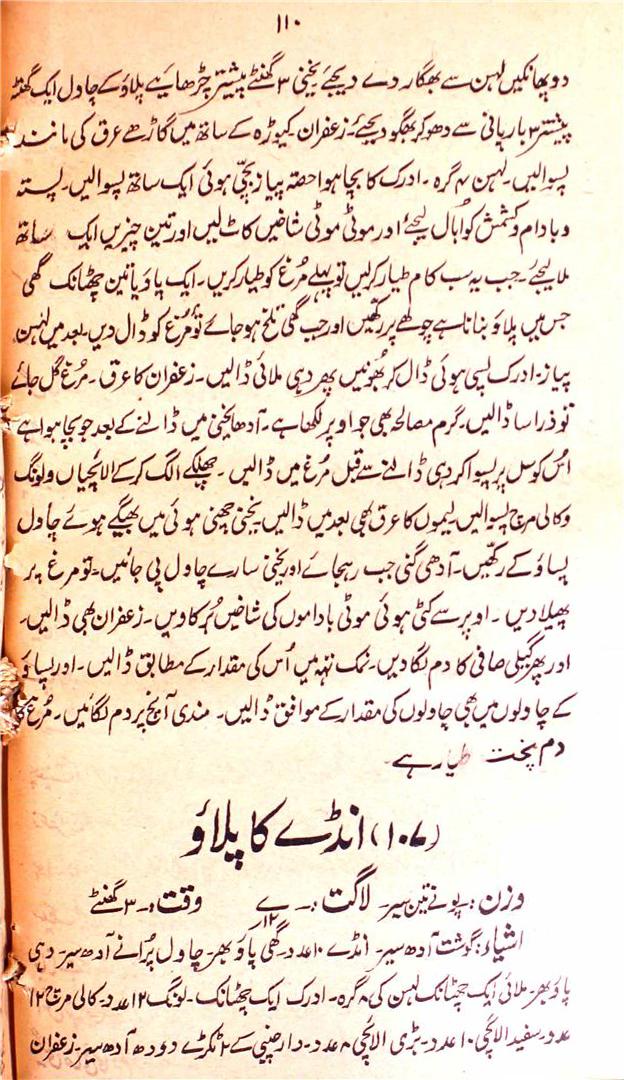 ۱۱۰
دو پھانکیں لہسن سے بھگار دے دیجئے یخنی ۳ گھنٹے پیشتر چڑھایئے پلاؤ کے چاول ایک گھنٹہ
پیشتر ۳ بار پانی سے دھو کر بھگو دیجئے۔ زعفران کیوڑہ کے ساتھ میں گاڑھے عرق کی مانند
پسوالیں۔ لہسن ۴ گرہ۔ ادرک کا بچا ہوا حصّہ پیاز بچی ہوئی ایک ساتھ پسوالیں۔ پستہ
و بادام و کشمش کو اُبال لیجئے اور موٹی موٹی شاخیں کاٹ لیں اور تین چیزیں ایک ساتھ
ملا لیجئے۔ جب یہ سب کام طیار کرلیں تو پہلے مُرغ کو طیار کریں۔ ایک پاؤ یا تین چھٹانک گھی
جس میں پلاؤ بنانا ہے چولھے پر رکھیں اور جب گھی تلخ ہو جائے تو مُرغ کو ڈال دیں۔ بعد میں لہسن،
پیاز۔ ادرک پسی ہوئی ڈال کر بھُونیں پھر دہی ملائی ڈالیں۔ زعفران کا عرق۔ مُرغ گل جائے
تو ذرا سا ڈالیں۔ گرم مصالحہ بھی جو اوپر لکھا ہے۔ آدھا یخنی میں ڈالنے کے بعد جو بچا ہوا ہے
اُس کو سل پر پسوا کر دہی ڈالنے سے قبل مُرغ میں ڈالیں۔ چھلکے الگ کر کے الائچیاں و لونگ
و کالی مرچ پسوالیں۔ لیموں کا عرق بھی بعد میں ڈالیں یخنی چھنی ہوئی میں بھیگے ہوئے چاول
پساؤ کے رکھیں۔ آدھی گنی جب رہجائے اور یخنی سارے چاول پی جائیں۔ تو مرغ پر
پھیلا دیں۔ اوپر سے کٹی ہوئی موٹی باداموں کی شاخیں بُرکا ویں۔ زعفران بھی ڈالیں۔
اور پھر گیلی صافی کا دم لگا دیں۔ نمک تہہ میں اُس کی مقدار کے مطابق ڈالیں۔ اور پساؤ
کے چاولوں میں بھی چاولوں کی مقدار کے موافق ڈالیں۔ مندی آنچ پر دم لگائیں۔ مُرغ کا
دم پخت طیار ہے۔
(۱۰۷) انڈے کا پلاؤ
وزن: پونے تین سیر۔ لاگت :۔ ۱۲ وقت :۔ ۳ گھنٹے
اشیاء: گوشت آدھ سیر۔ انڈے ۱۰ عدد۔ گھی پاؤ بھر۔ چاول پُرانے آدھ سیر۔ دہی
پاؤ بھر۔ ملائی ایک چھٹانک لہسن کی ۸ گرہ۔ ادرک ایک چھٹانک۔ لونگ ۱۲ عدد۔ کالی مرچ ۱۲
عدد۔ سفید الائچی ۱۰ عدد۔ بڑی الائچی ۸ عدد۔ دار چینی کے ۲ ٹکڑے دودھ آدھ سیر۔ زعفران